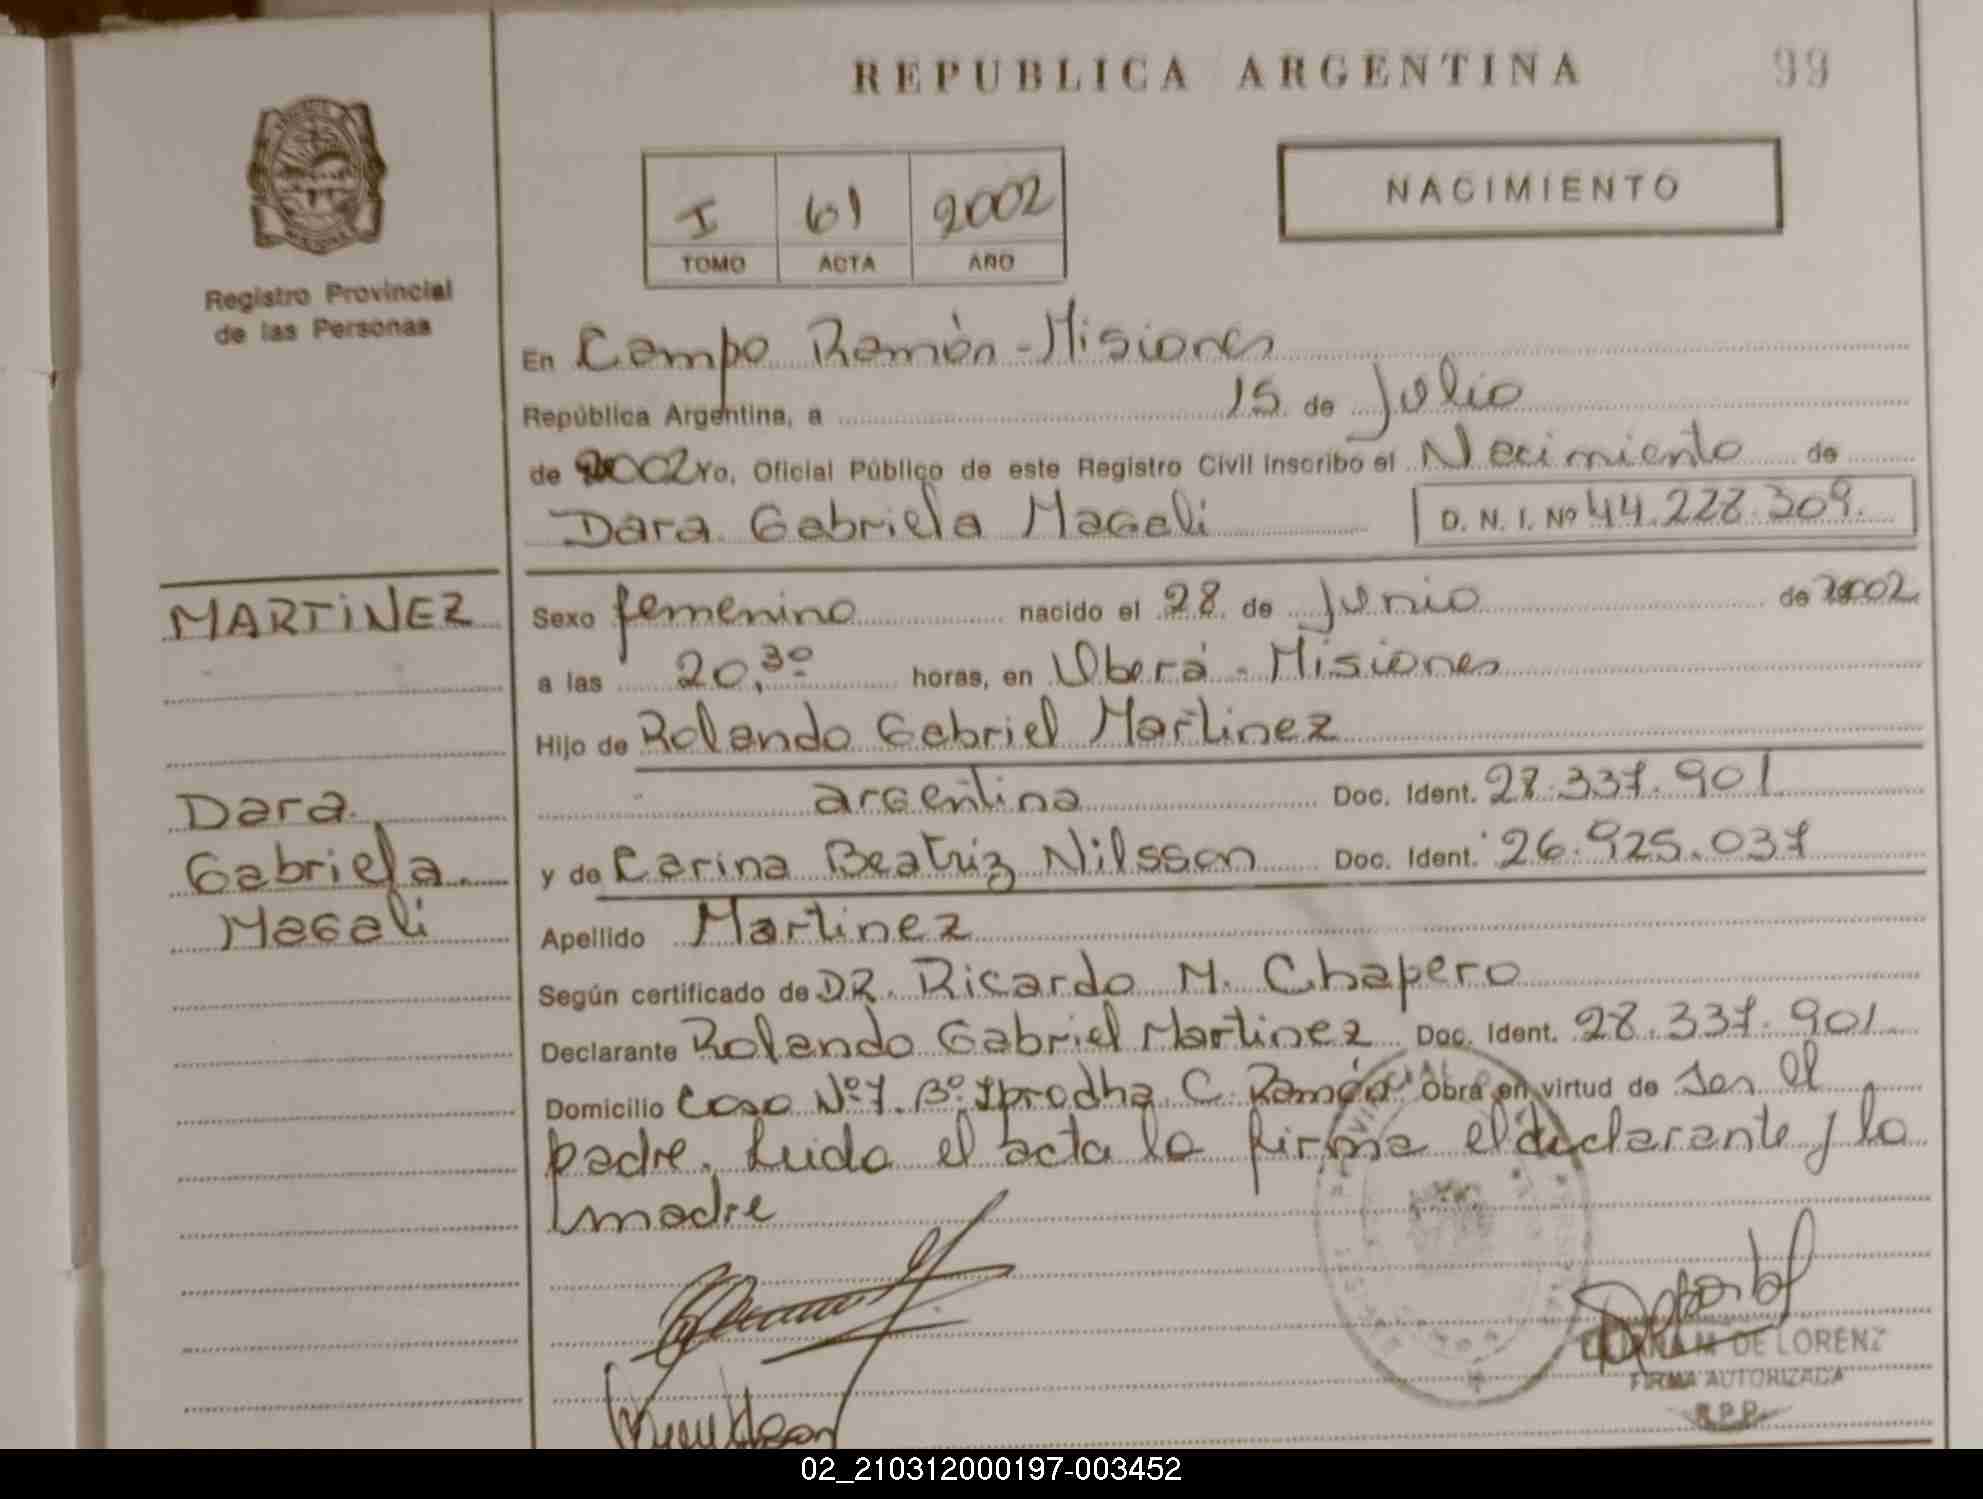 REPUBLICA ARGENTINA 99
Registro Provincial
de las Personas
I 61 2002
TOMO ACTA AÑO
NACIMIENTO
En Campo Ramón - Misiones
República Argentina, a 15 de Julio
de 2002 Yo, Oficial Público de este Registro Civil inscribo el Nacimiento de
Dara Gabriela Magali D. N. I. Nº 44.228.309.
MARTINEZ
Dara
Gabriela
Magali
Sexo femenino nacido el 28 de Junio de 2002
a las 20,30 horas, en Oberá - Misiones
Hijo de Rolando Gabriel Martinez
argentina Doc. Ident. 28.337.901
y de Carina Beatriz Nilsson Doc. Ident. 26.925.037
Apellido Martinez
Según certificado de DR. Ricardo M. Chapero
Declarante Rolando Gabriel Martinez Doc. Ident. 28.337.901
Domicilio Casa Nº 7. Bº Iprodha C. Ramón Obra en virtud de ser el
padre. Leida el acta la firma el declarante y la
madre
M DE LORENZ
FIRMA AUTORIZADA
R.P.P.
02_210312000197-003452